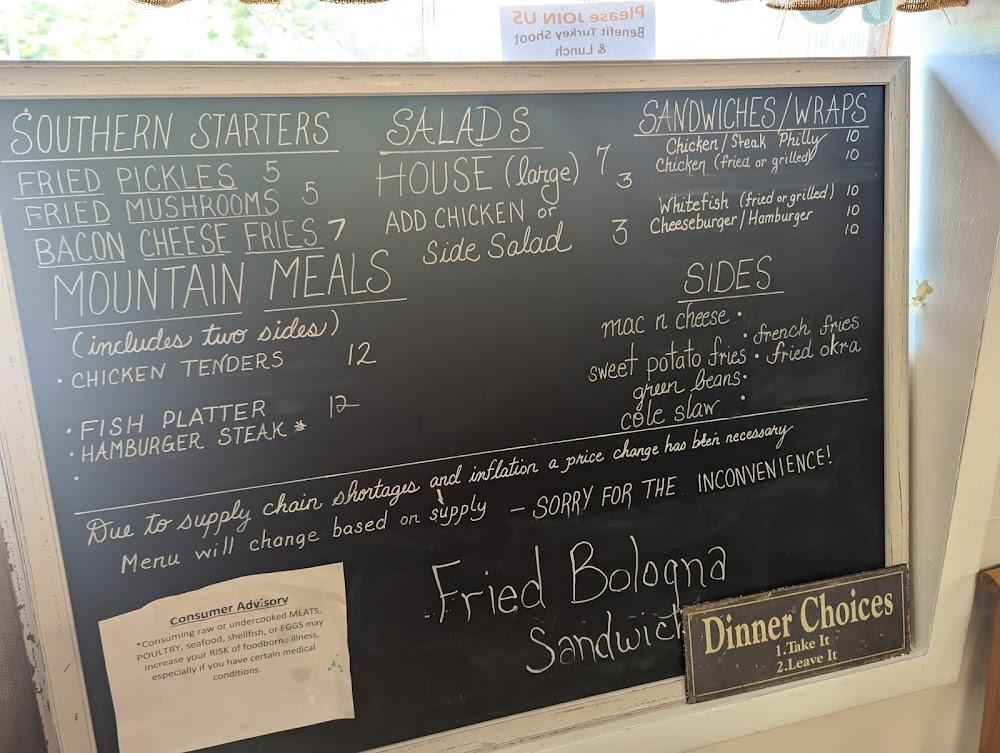 Please JOIN US
Benefit Turkey Shoot
& Lunch
SOUTHERN STARTERS
FRIED PICKLES 5
FRIED MUSHROOMS 5
BACON CHEESE FRIES 7
MOUNTAIN MEALS
(includes two sides)
• CHICKEN TENDERS 12
• FISH PLATTER 12
• HAMBURGER STEAK *
•
SALADS
HOUSE (large) 7
3
ADD CHICKEN or
Side Salad 3
SANDWICHES/WRAPS
Chicken/Steak Philly 10
Chicken (fried or grilled) 10
Whitefish (fried or grilled) 10
Cheeseburger/Hamburger 10
10
SIDES
mac n cheese •
• french fries
sweet potato fries • fried okra
green beans •
cole slaw •
Due to supply chain shortages and inflation a price change has been necessary
Menu will change based on supply – SORRY FOR THE INCONVENIENCE!
Fried Bologna
Sandwich
Consumer Advisory
*Consuming raw or undercooked MEATS,
POULTRY, seafood, shellfish, or EGGS may
increase your RISK of foodborne illness,
especially if you have certain medical
conditions.
Dinner Choices
1.Take It
2.Leave It